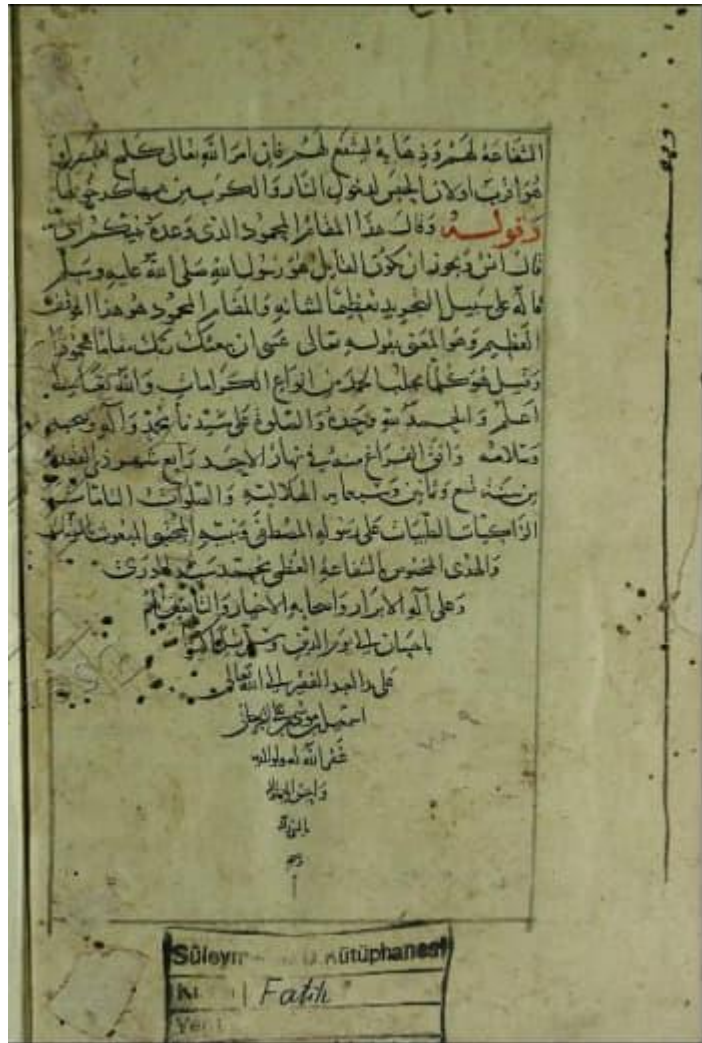 الشفاعة لهم وذهابه ليشفع لهم فان امر الله تعالى
هو اذن اولان الحبس لدخول النار والكرب
وقوله وقال هذا المقام المحمود الذى وعده نبيكم
قال انس ويجوز ان يكون القايل هو رسول الله صلى الله عليه وسلم
قاله على سبيل التجريد تعظيما لشانه والمقام المحمود هو هذا الموقف
العظيم وهو المعنى بقوله تعالى عسى ان يبعثك ربك مقاما محمودا
وقيل هو كلما يجلب الحمد من انواع الكرامات والله تعالى
اعلم والحمد لله وحده والصلوة على سيدنا محمد وآله وصحبه
وسلامه وافق الفراغ منه فى نهار الاحد رابع شهر ذى القعدة
من سنة تسع وثمانين وسبعمايه الهلاليه والصلوات التامات
الزاكيات الطيبات على رسوله المصطفى ونبيه المجتبى المبعوث
والهدى المخصوص بالشفاعة العظمى محمد سيد الورى
وعلى آله الابرار واصحابه الاخيار والتابعين لهم
باحسان الى يوم الدين وسلم تسليما كثيرا
على يد العبد الفقير الى الله تعالى
اسمعيل بن موسى بن
غفر الله له ولوالديه
Süleym Kütüphanesi
Fatih